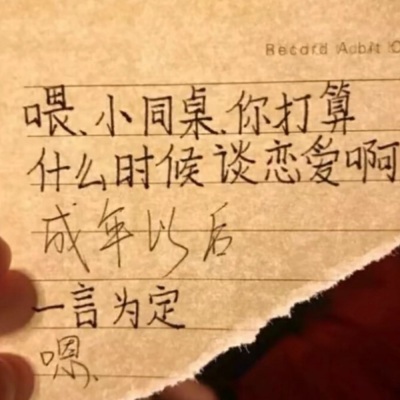 Record Audit
喂、小同桌、你打算
什么时候谈恋爱啊
成年以后
一言为定
嗯、